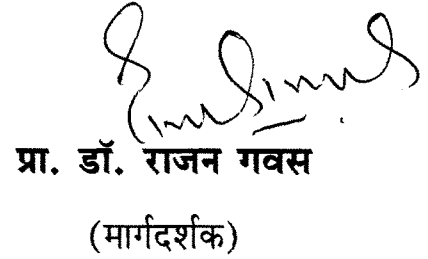 प्रा. डॉ. राजन गवस
(मार्गदर्शक)